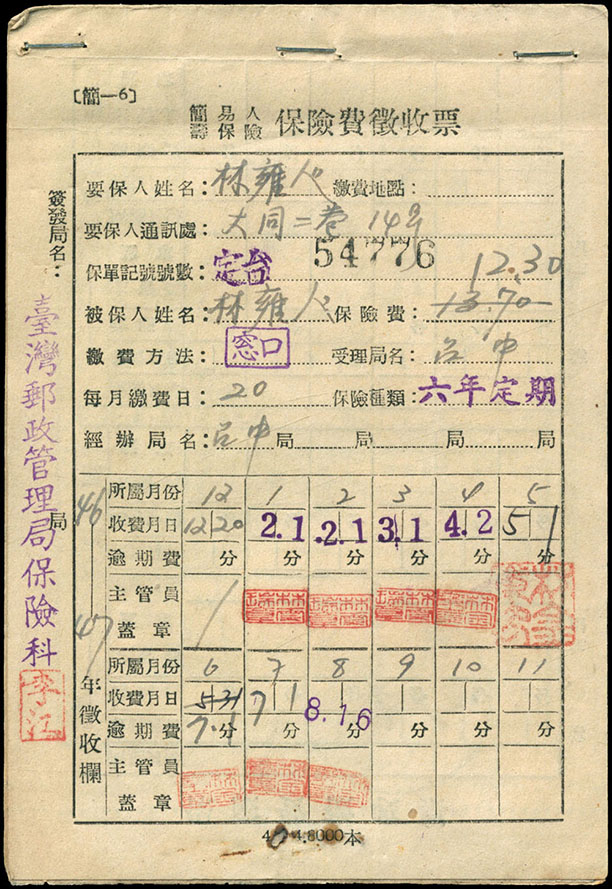 〔簡—6〕
簡易人壽保險 保險費徵收票
簽發局名：
臺灣郵政管理局保險科
局
李江
要保人姓名：林雍人 繳費地點：
要保人通訊處：大同二巷 14号
保單記號號數：定台 54776 12.30
被保人姓名：林雍人 保險費：13.70
繳費方法：窓口 受理局名：台中
每月繳費日：20 保險種類：六年定期
經辦局名：台中局 局 局 局
46
47
年徵收欄
所屬月份 12 1 2 3 4 5
收費月日 12 20 2.1 2.1 3.1 4.2 5 1
逾期費 分 分 分 分 分 分
主管員蓋章
所屬月份 6 7 8 9 10 11
收費月日 5 31 7 1 8.16
逾期費 7.1 分 分 分 分 分 分
主管員蓋章
4.8000本